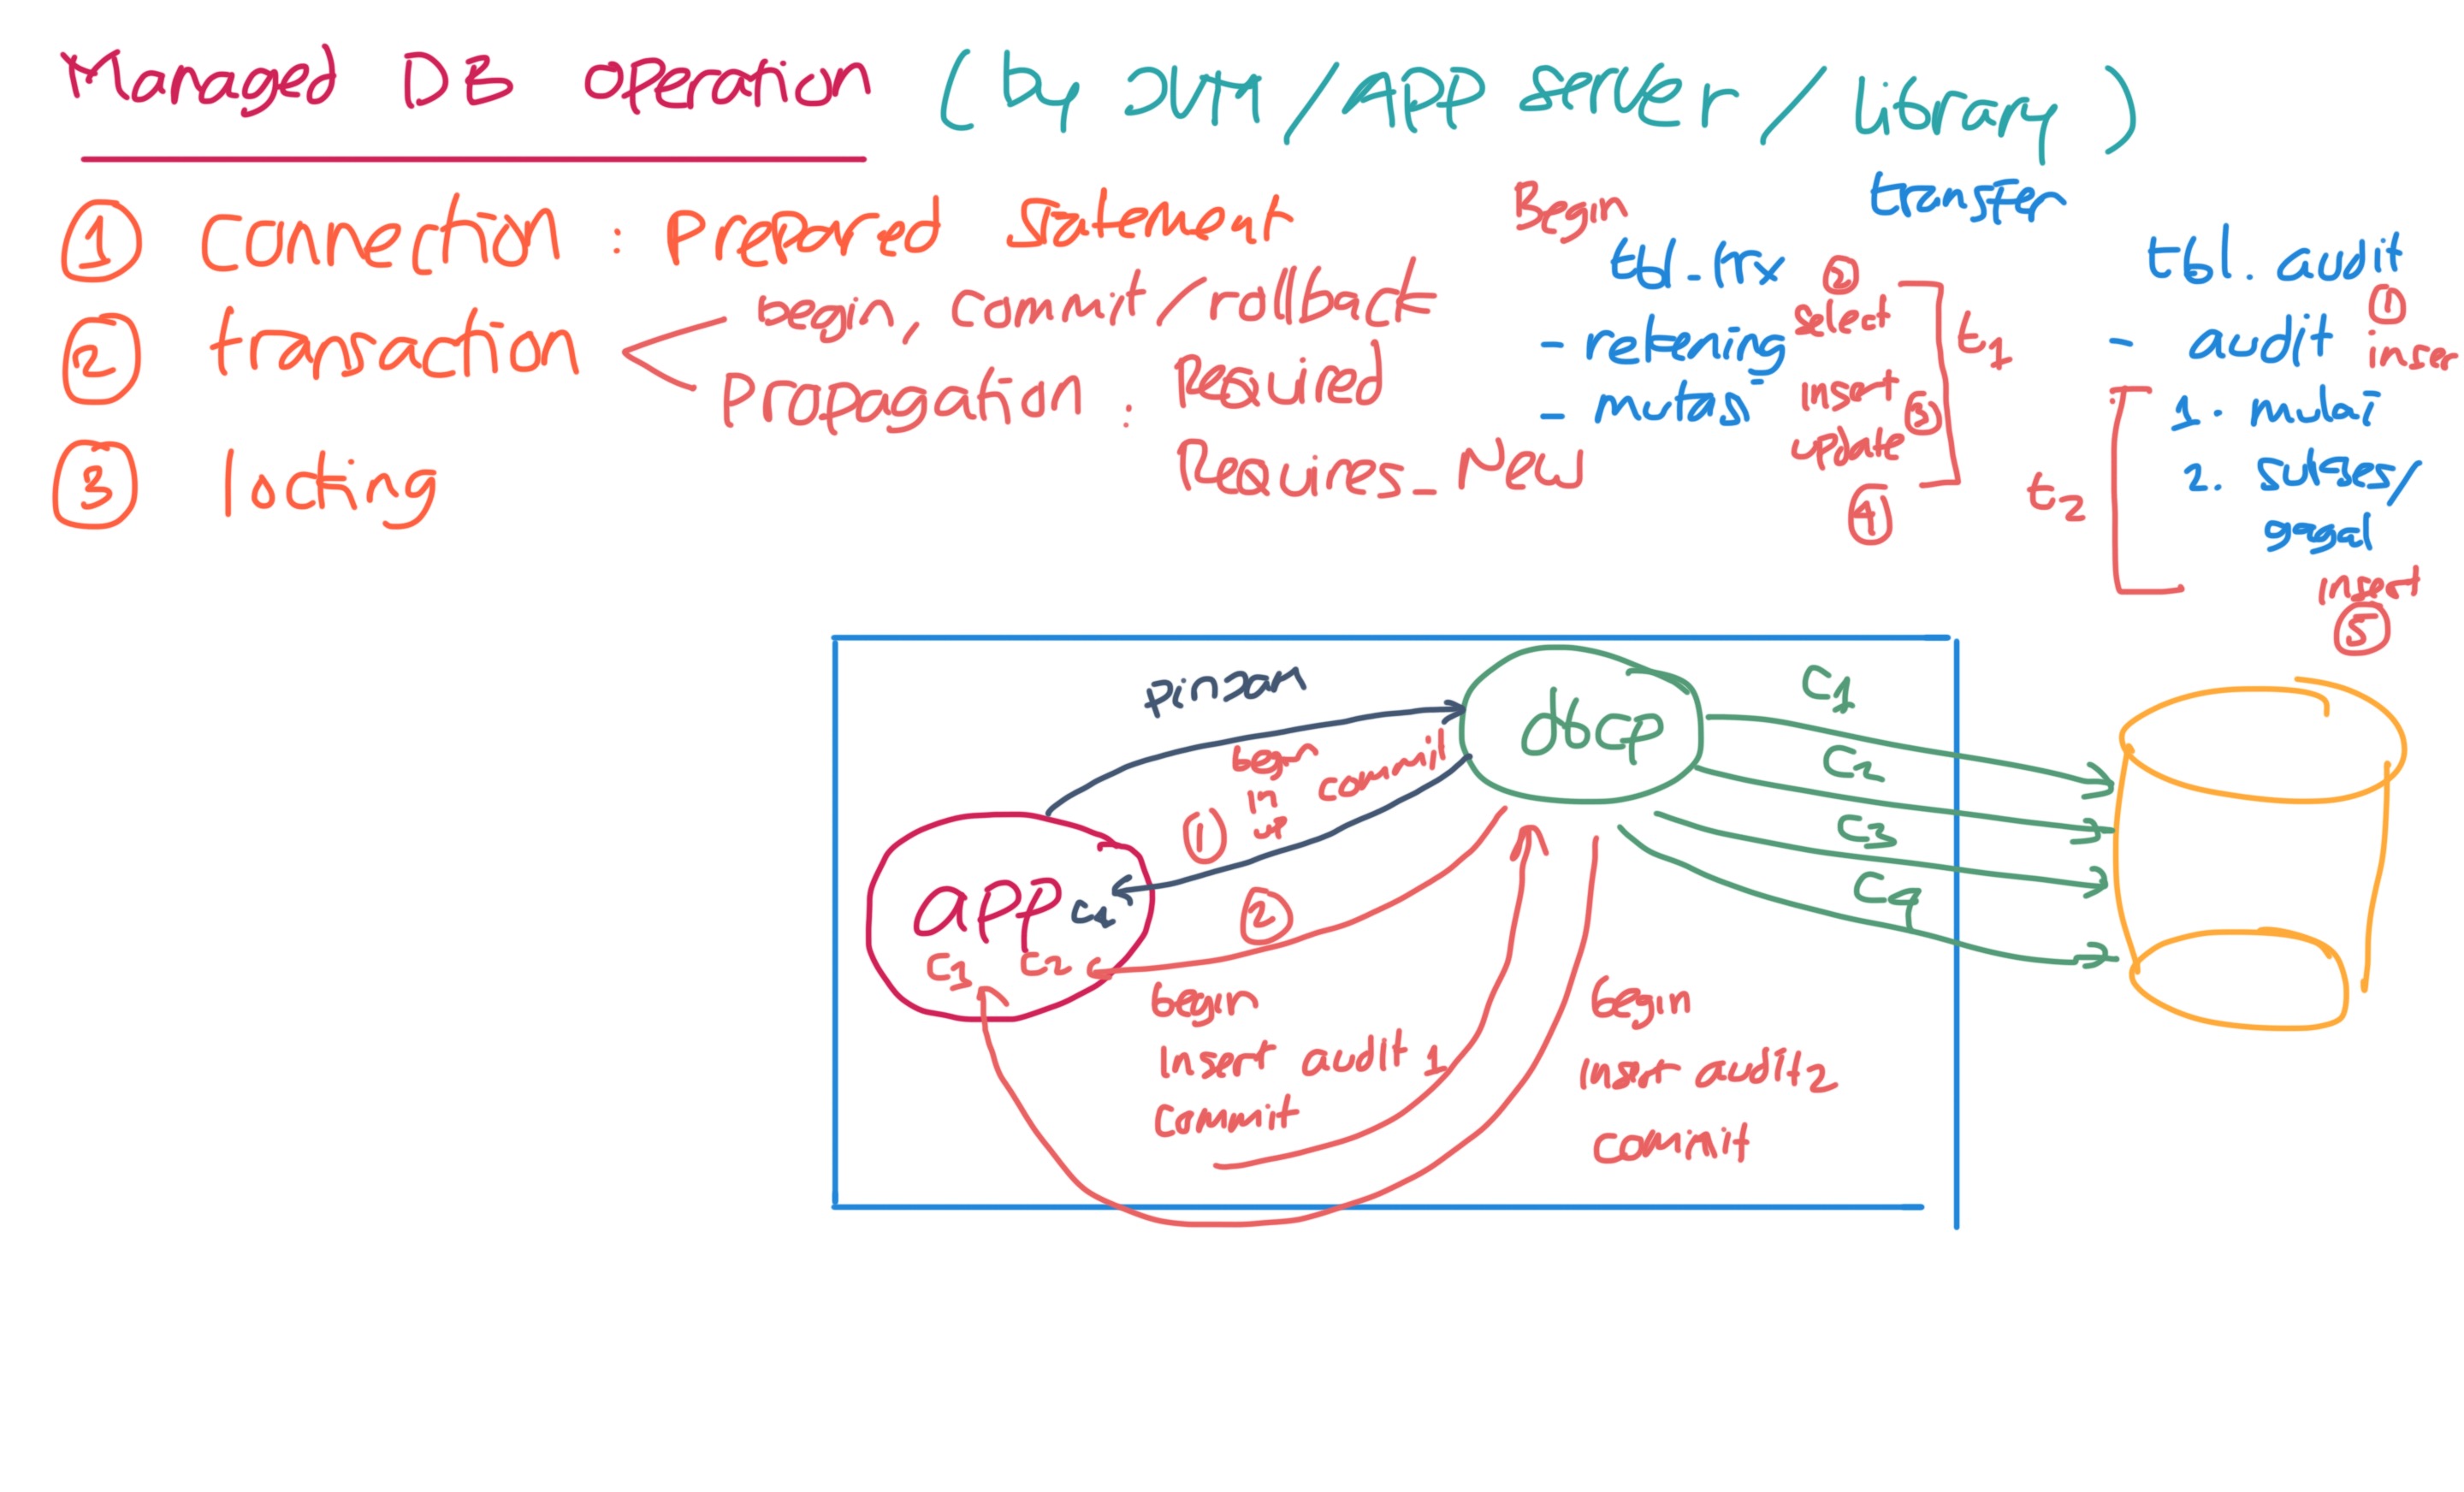 Managed DB Operation (by JVM/App server/library)
① Connection : Prepared Statement
② transaction
begin, commit/rollback
Propagation : Required
Requires_New
③ locking
Begin
transfer
tbl_trx
- rekening
- mutasi
② select
insert ③
update
④
t1
tbl. audit
①
- audit inser
t2
1. mulai
2. sukses/
gagal
insert
⑤
pinjam
dbcp
C1
C2
C3
C4
begin
in commit
up
①
app
②
C3 C2
begin
insert audit 1
commit
begin
insert audit2
commit